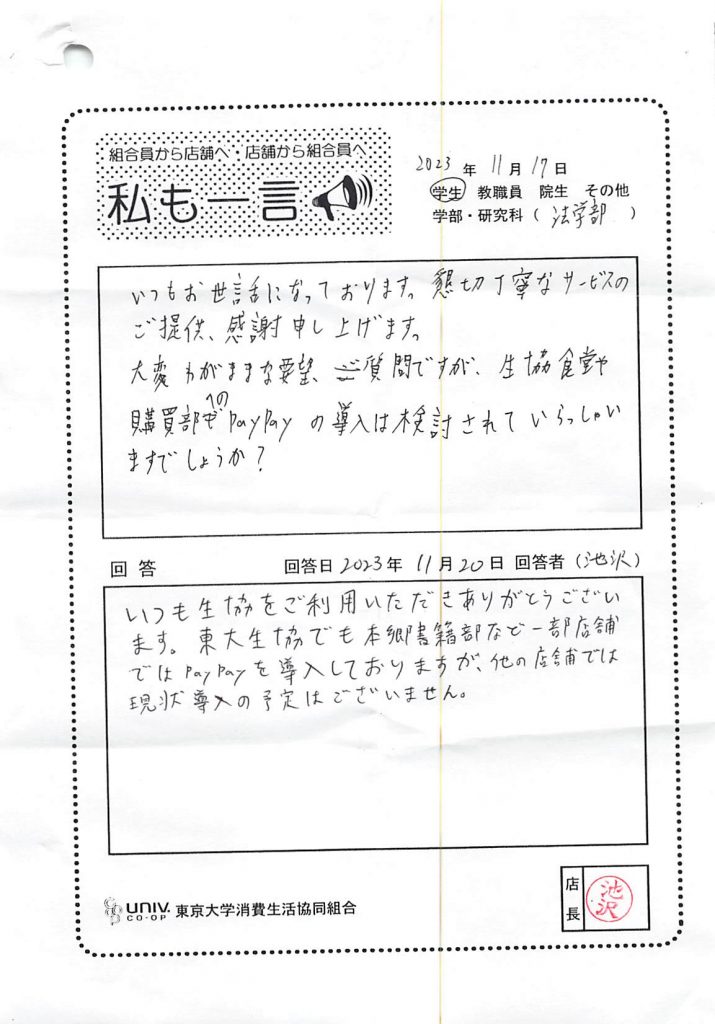 組合員から店舗へ・店舗から組合員へ
私も一言
2023 年 11 月 17 日
学生 教職員 院生 その他
学部・研究科 ( 法学部 )
いつもお世話になっております。懇切丁寧なサービスの
ご提供、感謝申し上げます。
大変わがままな要望、ご質問ですが、生協食堂や
購買部への PayPay の導入は検討されていらっしゃい
ますでしょうか?
回答 回答日 2023年 11月20日 回答者 (池沢)
いつも生協をご利用いただきありがとうござい
ます。東大生協でも本郷書籍部など一部店舗
ではPayPayを導入しておりますが、他の店舗では
現状導入の予定はございません。
UNIV. CO-OP 東京大学消費生活協同組合
店長 池沢